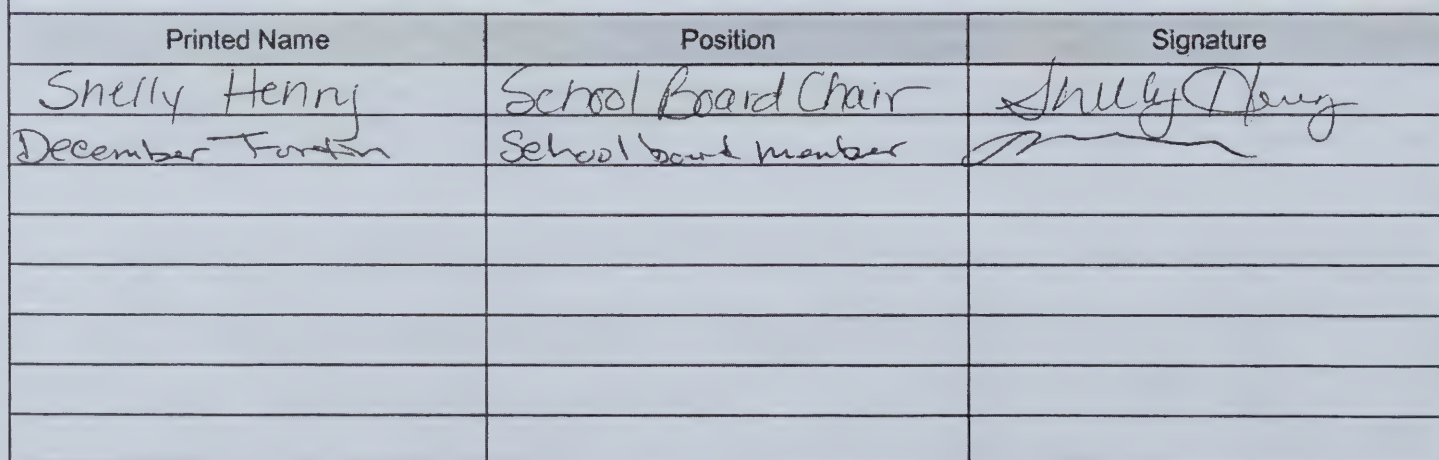 Printed Name Position Signature
Shelly Henny School Board Chair Shelly Henny
December Fortin School board member